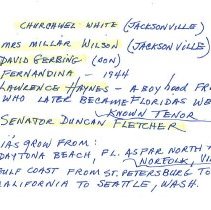 CHURCHWEL WHITE (JACKSONVILLE)
MRS MILLAR WILSON (JACKSONVILLE)
DAVID GERBING (RON)
FERNANDINA - 1944
LAWRENCE HAYNES - A BOYHOOD FR
WHO LATER BECAME FLORIDAS WE
KNOWN TENOR
SENATOR DUNCAN FLETCHER
IAS GROW FROM:
DAYTONA BEACH, FL. AS FAR NORTH
NORFOLK, VI
GULF COAST FROM ST. PETERSBURG TO
CALIFORNIA TO SEATTLE, WASH.